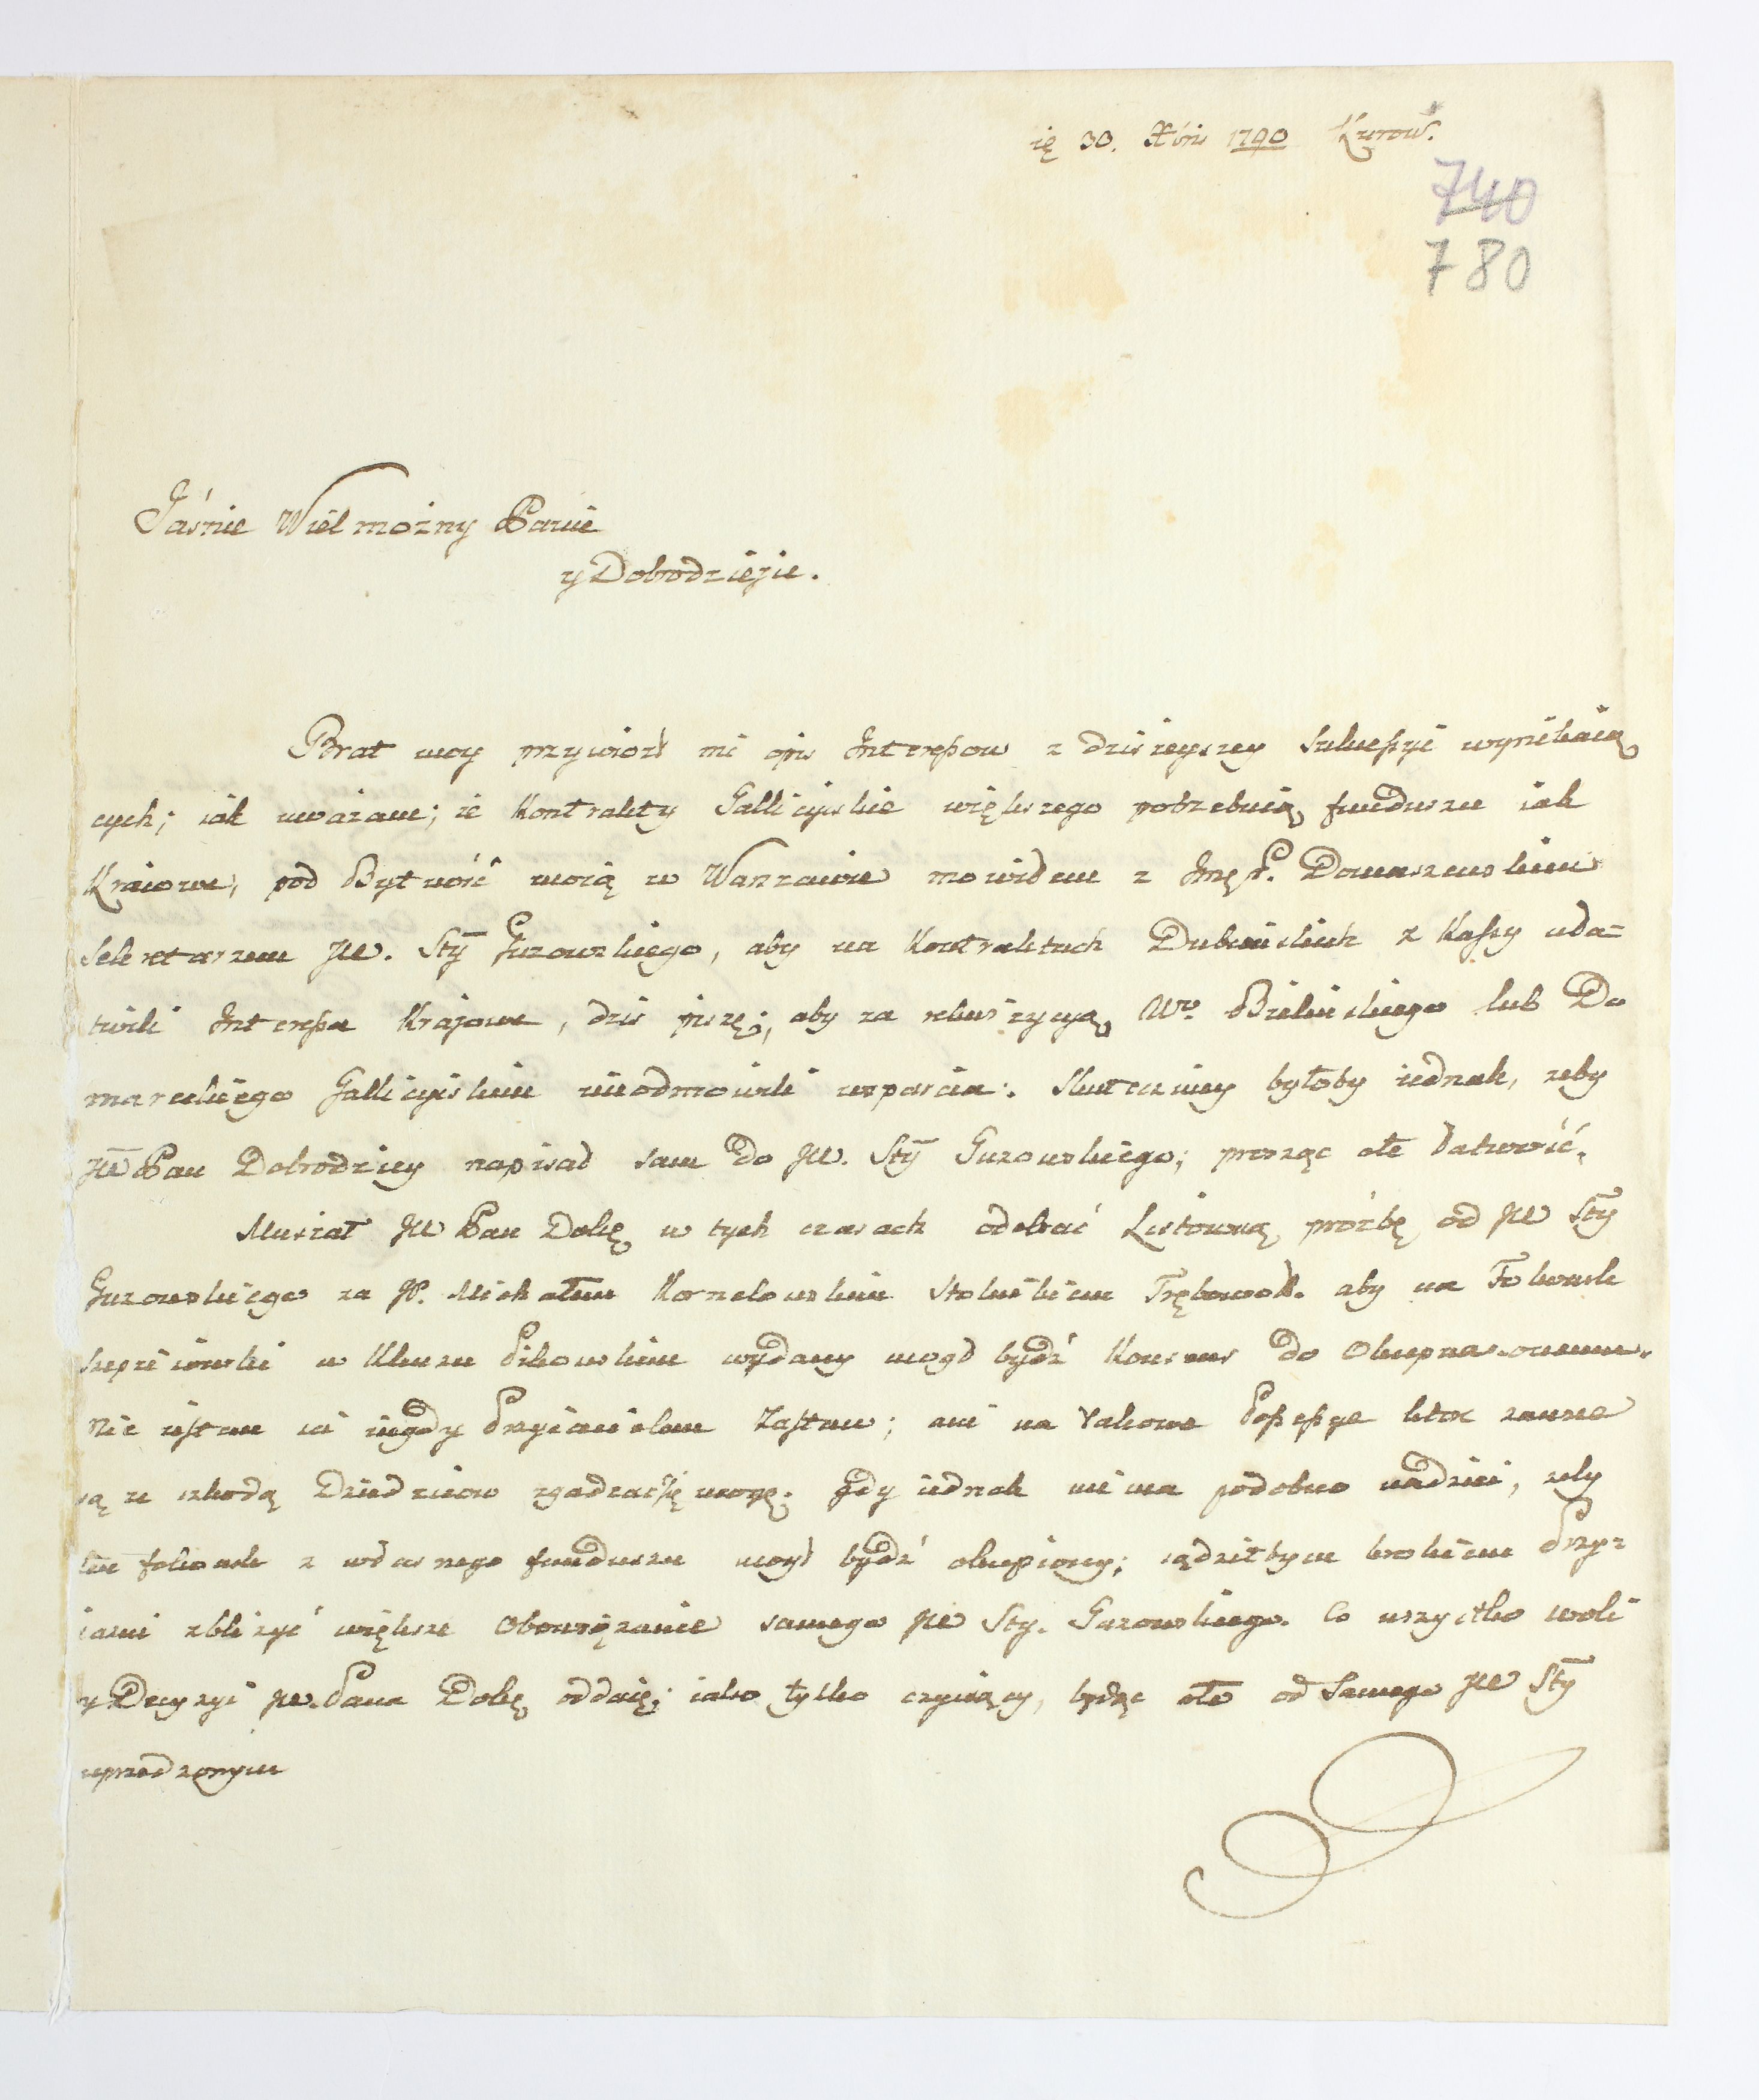 30. Xbris 1790 Kurow.
740
780
Jaśnie Wielmożny Panie
y Dobrodzieju.
Brat moy przywiozł mi opis Interessow z dzisieyszey sukcessyi wynikaią
cych; iak uważam; że Kontrakty Gallicyiskie większego potrzebuią funduszu iak
Kraiowe, pod Bytność moią w Warszawie mowiłem z Imę P. Domaszewskim
Sekretarzem JW. Sty Guzowskiego, aby na Kontraktach Dubienskich z Kassy uła=
twili Interessa Krajowe, dziś piszę; aby za rekwizycyą Wo. Bielinskiego lub Do
mareckiego Gallicyiskim nieodmowili wsparcia. Skuteczniey byłoby iednak, żeby
JW Pan Dobrodziey napisał sam do JW. Sty Guzowskiego; prosząc ofe łatwość.
Musiał JW Pan Dobę w tych czasach odebrać Listowną prośbę od JW Sty
Guzowskiego za JP. Michałem Korzelowskim Stolnikiem Trębowol. aby na Folwark
w Kluczu Pikowskim wydany mogł bydź Konsens do
Nie iestem ia nigdy Przyiacielem Zastaw; ani na takowe Possessye ktore zawsze
są ze szkodą Dziedzicow zgadzać się mogę. Gdy iednak nie ma podobno nadziei, żeby
ten folwark z własnego funduszu mogł bydź okupiony; sądziłbym krokiem Przy=
iazni zbliżyć większe Obowiązanie samego JW Sty. Guzowskiego. Co wszystko woli
y Decyzyi JW. Pana Dobę oddaię; iako tylko czyniący, będąc ofe od Samego JW Sty
uprzedzonym